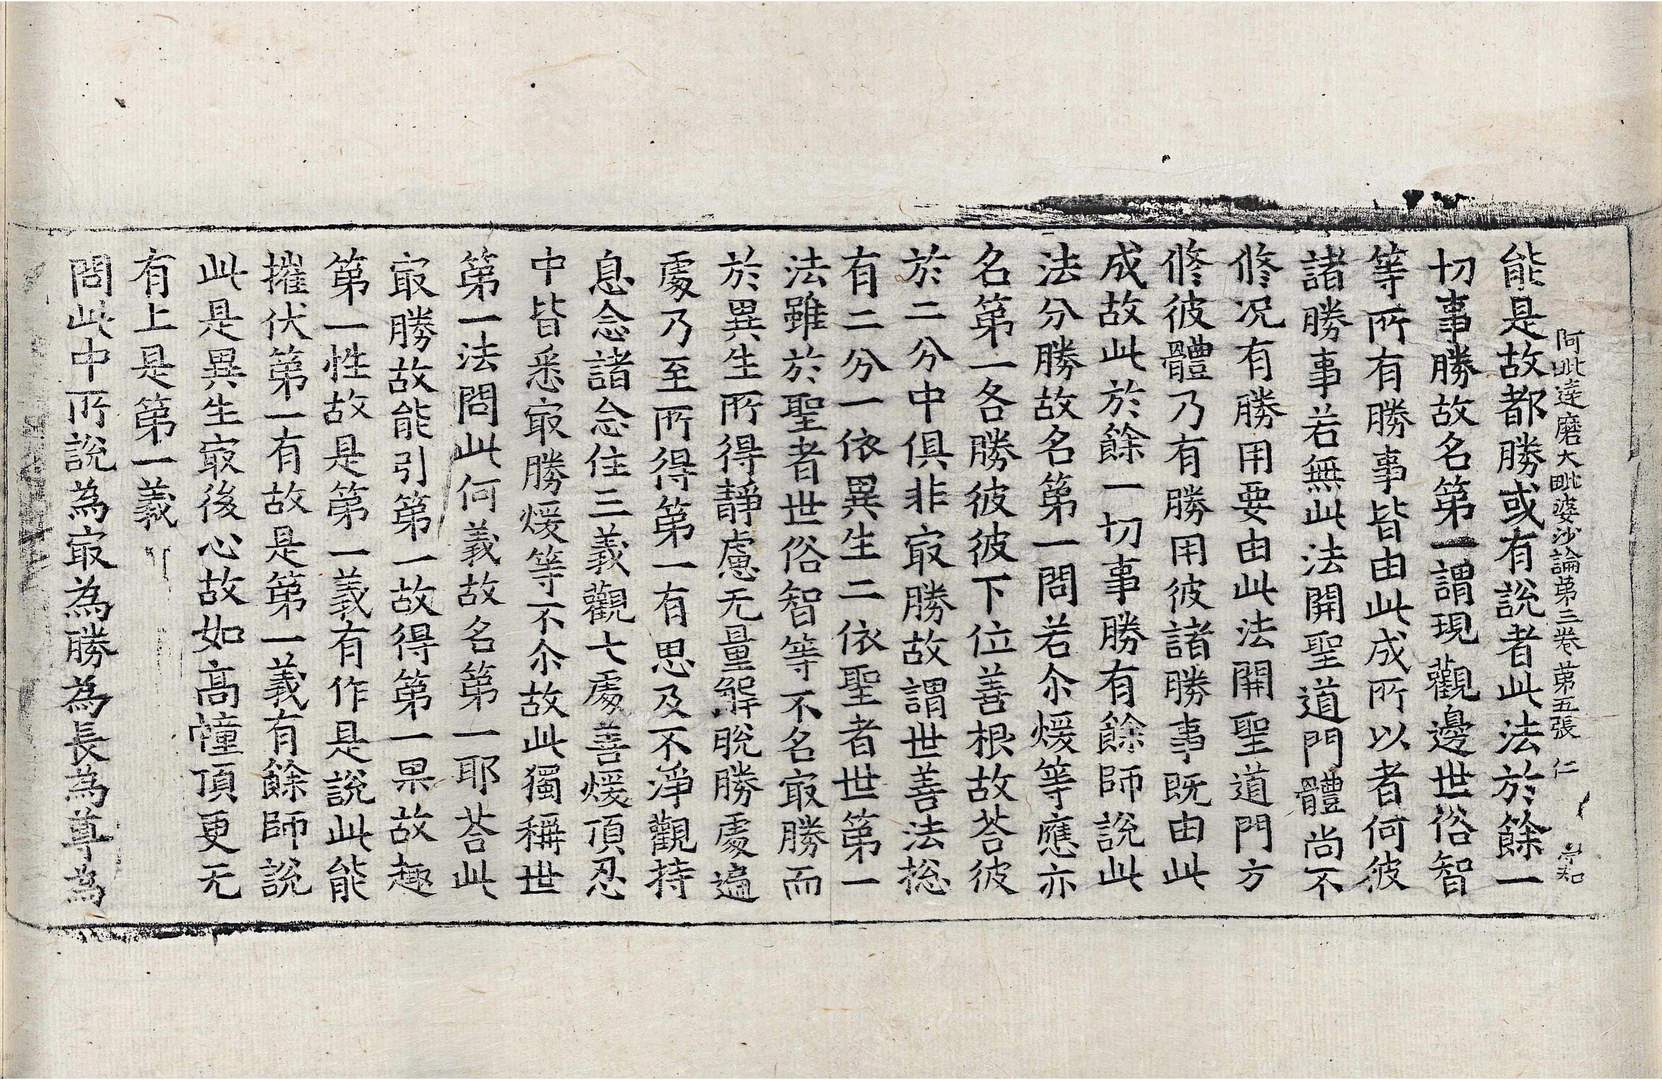 阿毗達磨大毗婆沙論第三卷第五張 仁
能是故都勝或有說者此法於餘一
切事勝故名第一謂現觀邊世俗智
等所有勝事皆由此成所以者何彼
諸勝事若無此法開聖道門體尚不
修况有勝用要由此法開聖道門方
修彼體乃有勝用彼諸勝事既由此
成故此於餘一切事勝有餘師說此
法分勝故名第一問若尒煖等應亦
名第一各勝彼彼下位善根故荅彼
於二分中俱非㝡勝故謂世善法捴
有二分一依異生二依聖者世第一
法雖於聖者世俗智等不名㝡勝而
於異生所得靜慮无量解脫勝處遍
處乃至所得第一有思及不淨觀持
息念諸念住三義觀七處善煖頂忍
中皆悉㝡勝煖等不尒故此獨稱世
第一法問此何義故名第一耶荅此
㝡勝故能引第一故得第一果故趣
第一性故是第一義有作是說此能
摧伏第一有故是第一義有餘師說
此是異生㝡後心故如高幢頂更无
有上是第一義
問此中所說為㝡為勝為長為尊為